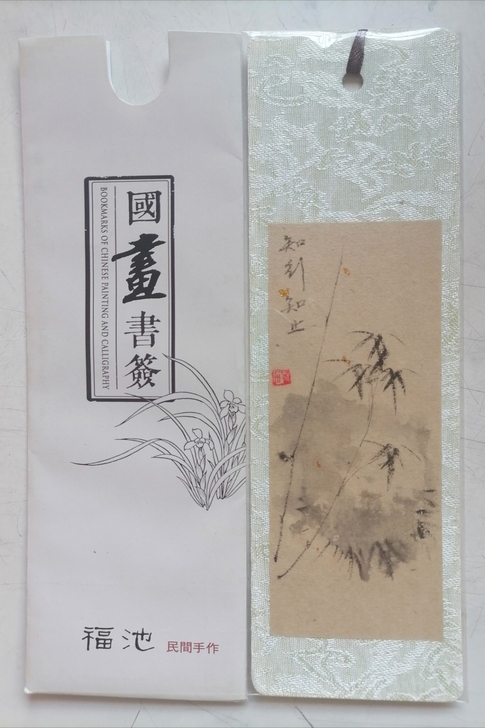 國畫書簽
BOOKMARKS OF CHINESE PAINTING AND CALLIGRAPHY
福池 民間手作
知行知止